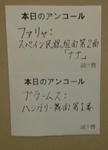 本日のアンコール
ファリャ:
スペイン民謡組曲第2曲
「ナナ」
本日のアンコール
ブラームス:
ハンガリー舞曲第1番